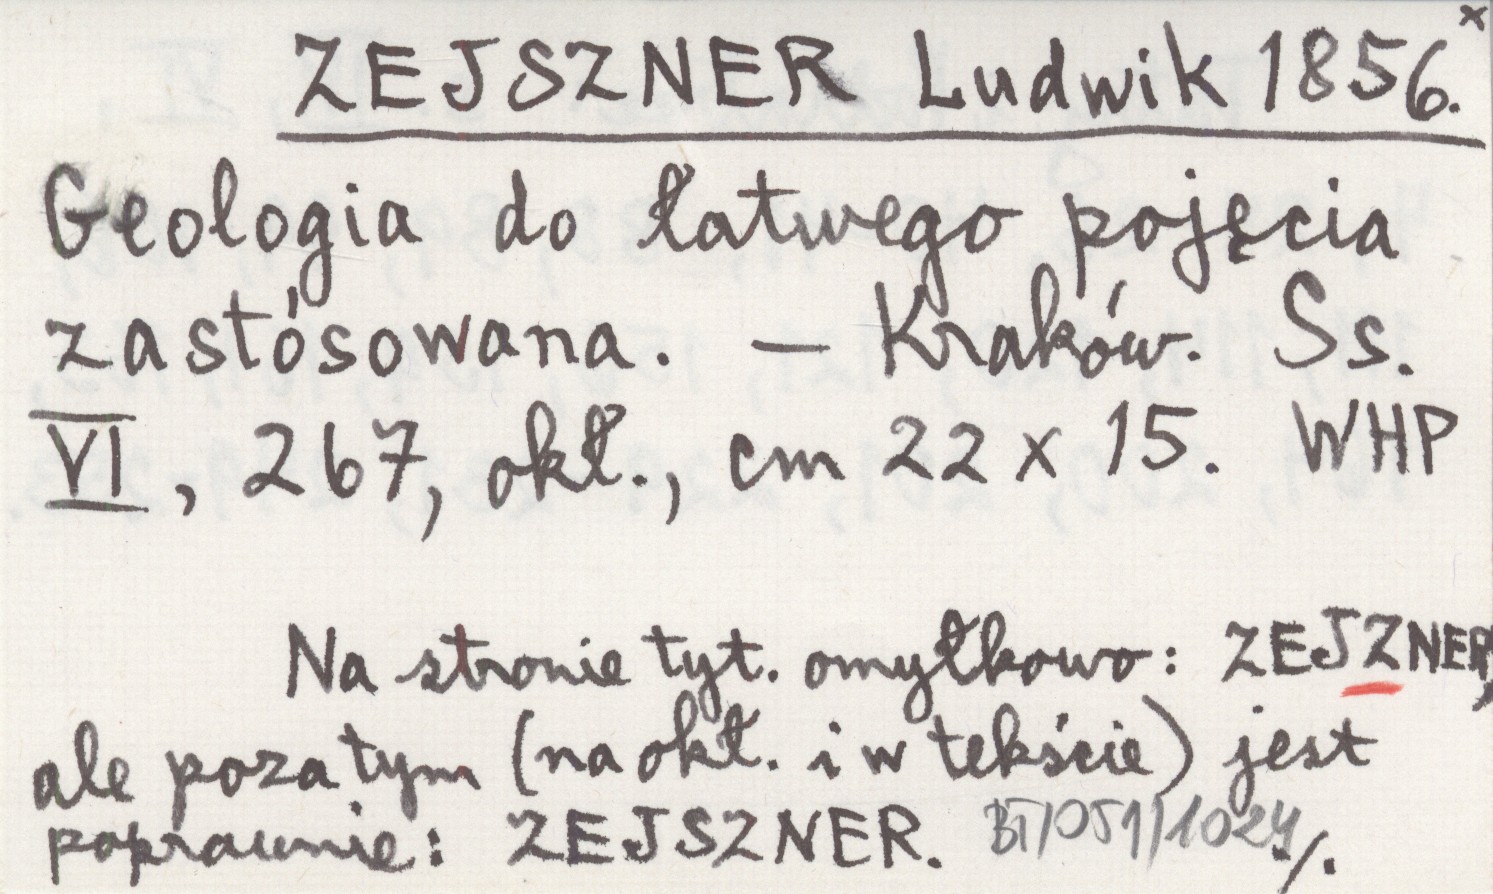 ZEJSZNER Ludwik 1856. x
Geologia do łatwego pojęcia
zastósowana. — Kraków. Ss.
VI, 267, okł., cm 22 x 15. WHP
Na stronie tyt. omyłkowo: ZEJZNER,
ale poza tym (na okł. i w tekście) jest
poprawnie: ZEJSZNER. BT/051/1024 /.